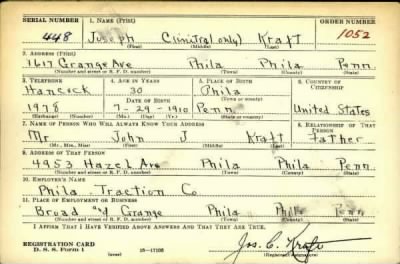 SERIAL NUMBER 1. NAME (Print) ORDER NUMBER
448 Joseph C(initial only) Kraft 1052
(First) (Middle) (Last)
2. ADDRESS (Print)
1617 Grange Ave Phila Phila Penn.
(Number and street or R. F. D. number) (Town) (County) (State)
3. TELEPHONE 4. AGE IN YEARS 5. PLACE OF BIRTH 6. COUNTRY OF CITIZENSHIP
Hancock 30 Phila
DATE OF BIRTH (Town or county)
1978 7-29-1910 Penn. United States
(Exchange) (Number) (Mo.) (Day) (Yr.) (State or country)
7. NAME OF PERSON WHO WILL ALWAYS KNOW YOUR ADDRESS 8. RELATIONSHIP OF THAT PERSON
Mr John J Kraft Father
(Mr., Mrs., Miss) (First) (Middle) (Last)
9. ADDRESS OF THAT PERSON
4953 Hazel Ave Phila Phila Penn.
(Number and street or R. F. D. number) (Town) (County) (State)
10. EMPLOYER'S NAME
Phila Traction Co.
11. PLACE OF EMPLOYMENT OR BUSINESS
Broad & Grange Phila Phila Penn
(Number and street or R. F. D. number) (Town) (County) (State)
I AFFIRM THAT I HAVE VERIFIED ABOVE ANSWERS AND THAT THEY ARE TRUE.
REGISTRATION CARD
D. S. S. Form 1 (over) 16—17105 Jos. C. Kraft
(Registrant's signature)